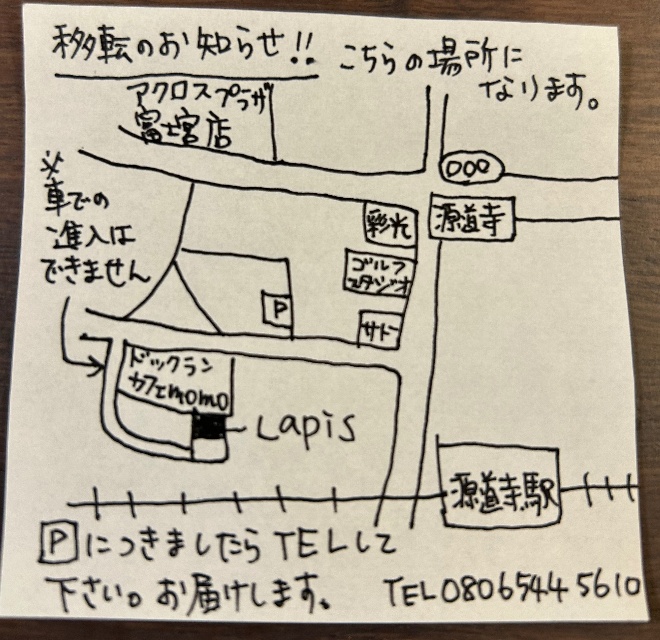 移転のお知らせ!!
こちらの場所に
なります。
アクロスプラザ
富士宮店
※
車での
進入は
できません
彩光
源道寺
ゴルフ
スタジオ
P
サトー
ドックラン
カフェmomo
Lapis
源道寺駅
Pにつきましたら TELして
下さい。お届けします。
TEL 080 6544 5610